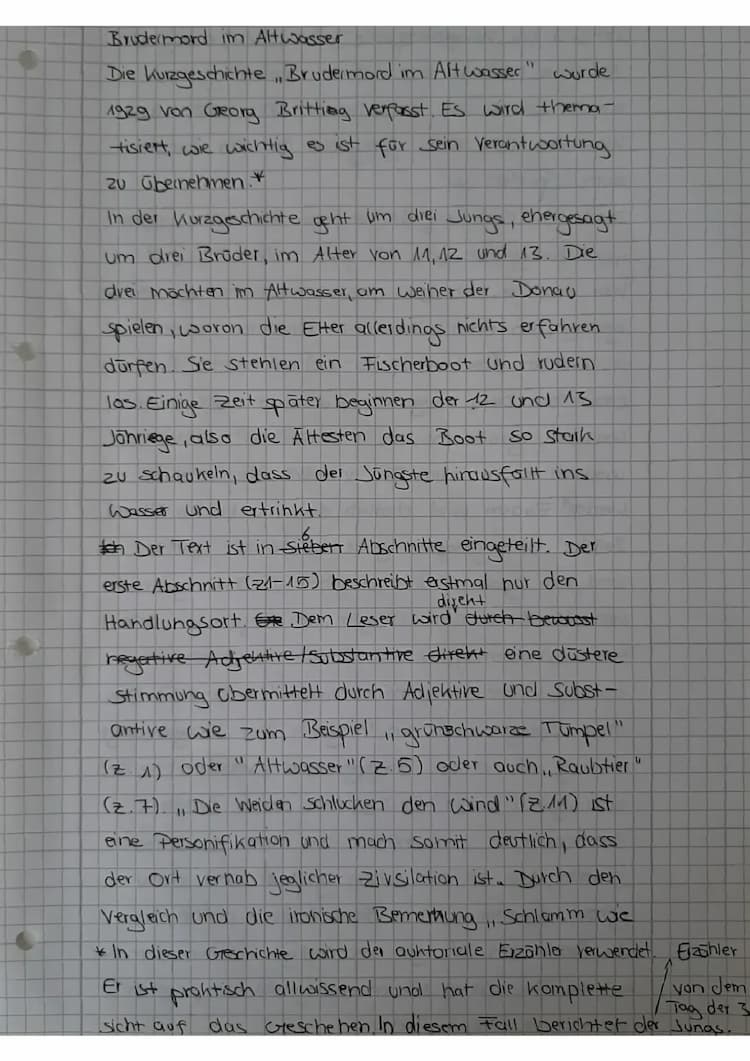 Brudermord im Altwasser
Die Kurzgeschichte „Brudermord im Altwasser" wurde
1929 von Georg Britting verfasst. Es wird thema-
tisiert, wie wichtig es ist für sein Verantwortung
zu übernehmen.*
In der Kurzgeschichte geht um drei Jungs, ehergesagt
um drei Brüder, im Alter von 11, 12 und 13. Die
drei möchten im Altwasser, am Weiher der Donau
spielen, wovon die Elter allerdings nichts erfahren
dürfen. Sie stehlen ein Fischerboot und rudern
los. Einige Zeit später beginnen der 12 und 13
Jähriege, also die Ältesten das Boot so stark
zu schaukeln, dass der Jüngste hinausfällt ins
Wasser und ertrinkt.
Ich Der Text ist in sieben 6 Abschnitte eingeteilt. Der
erste Abschnitt (z1-15) beschreibt erstmal nur den
Handlungsort. Dem Leser wird direkt durch bewusst
negative Adjektive/Substantive direkt eine düstere
Stimmung übermittelt durch Adjektive und Subst-
antive wie zum Beispiel „grünschwarze Tümpel"
(z 1) oder "Altwasser" (z.5) oder auch „Raubtier"
(z.7). „Die Weiden schlucken den Wind" (z.11) ist
eine Personifikation und mach somit deutlich, dass
der Ort vernab jeglicher Zivsilation ist. Durch den
Vergleich und die ironische Bemerkung „Schlamm wie
* In dieser Geschichte wird der auktoriale Erzähler verwendet.
Er ist praktisch allwissend und hat die komplette
sicht auf das Geschehen. In diesem Fall berichtet der
Erzähler
von dem
Tag der 3
Jungs.